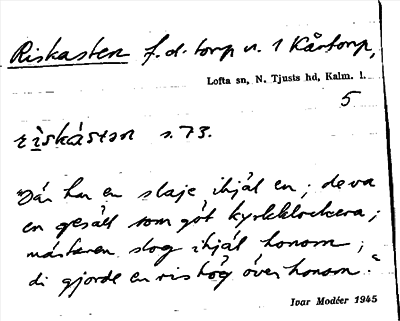 Riskasten f.d. torp u. 1 Kårtorp,
Lofta sn, N. Tjusts hd, Kalm. l.
5
rìskás s. 73.
"Där har en slaje ihjäl en; de va
en gesäll som göt kyrkklockera;
mästaren slog ihjäl honom;
di gjorde en rishög över honom."
Ivar Modéer 1945